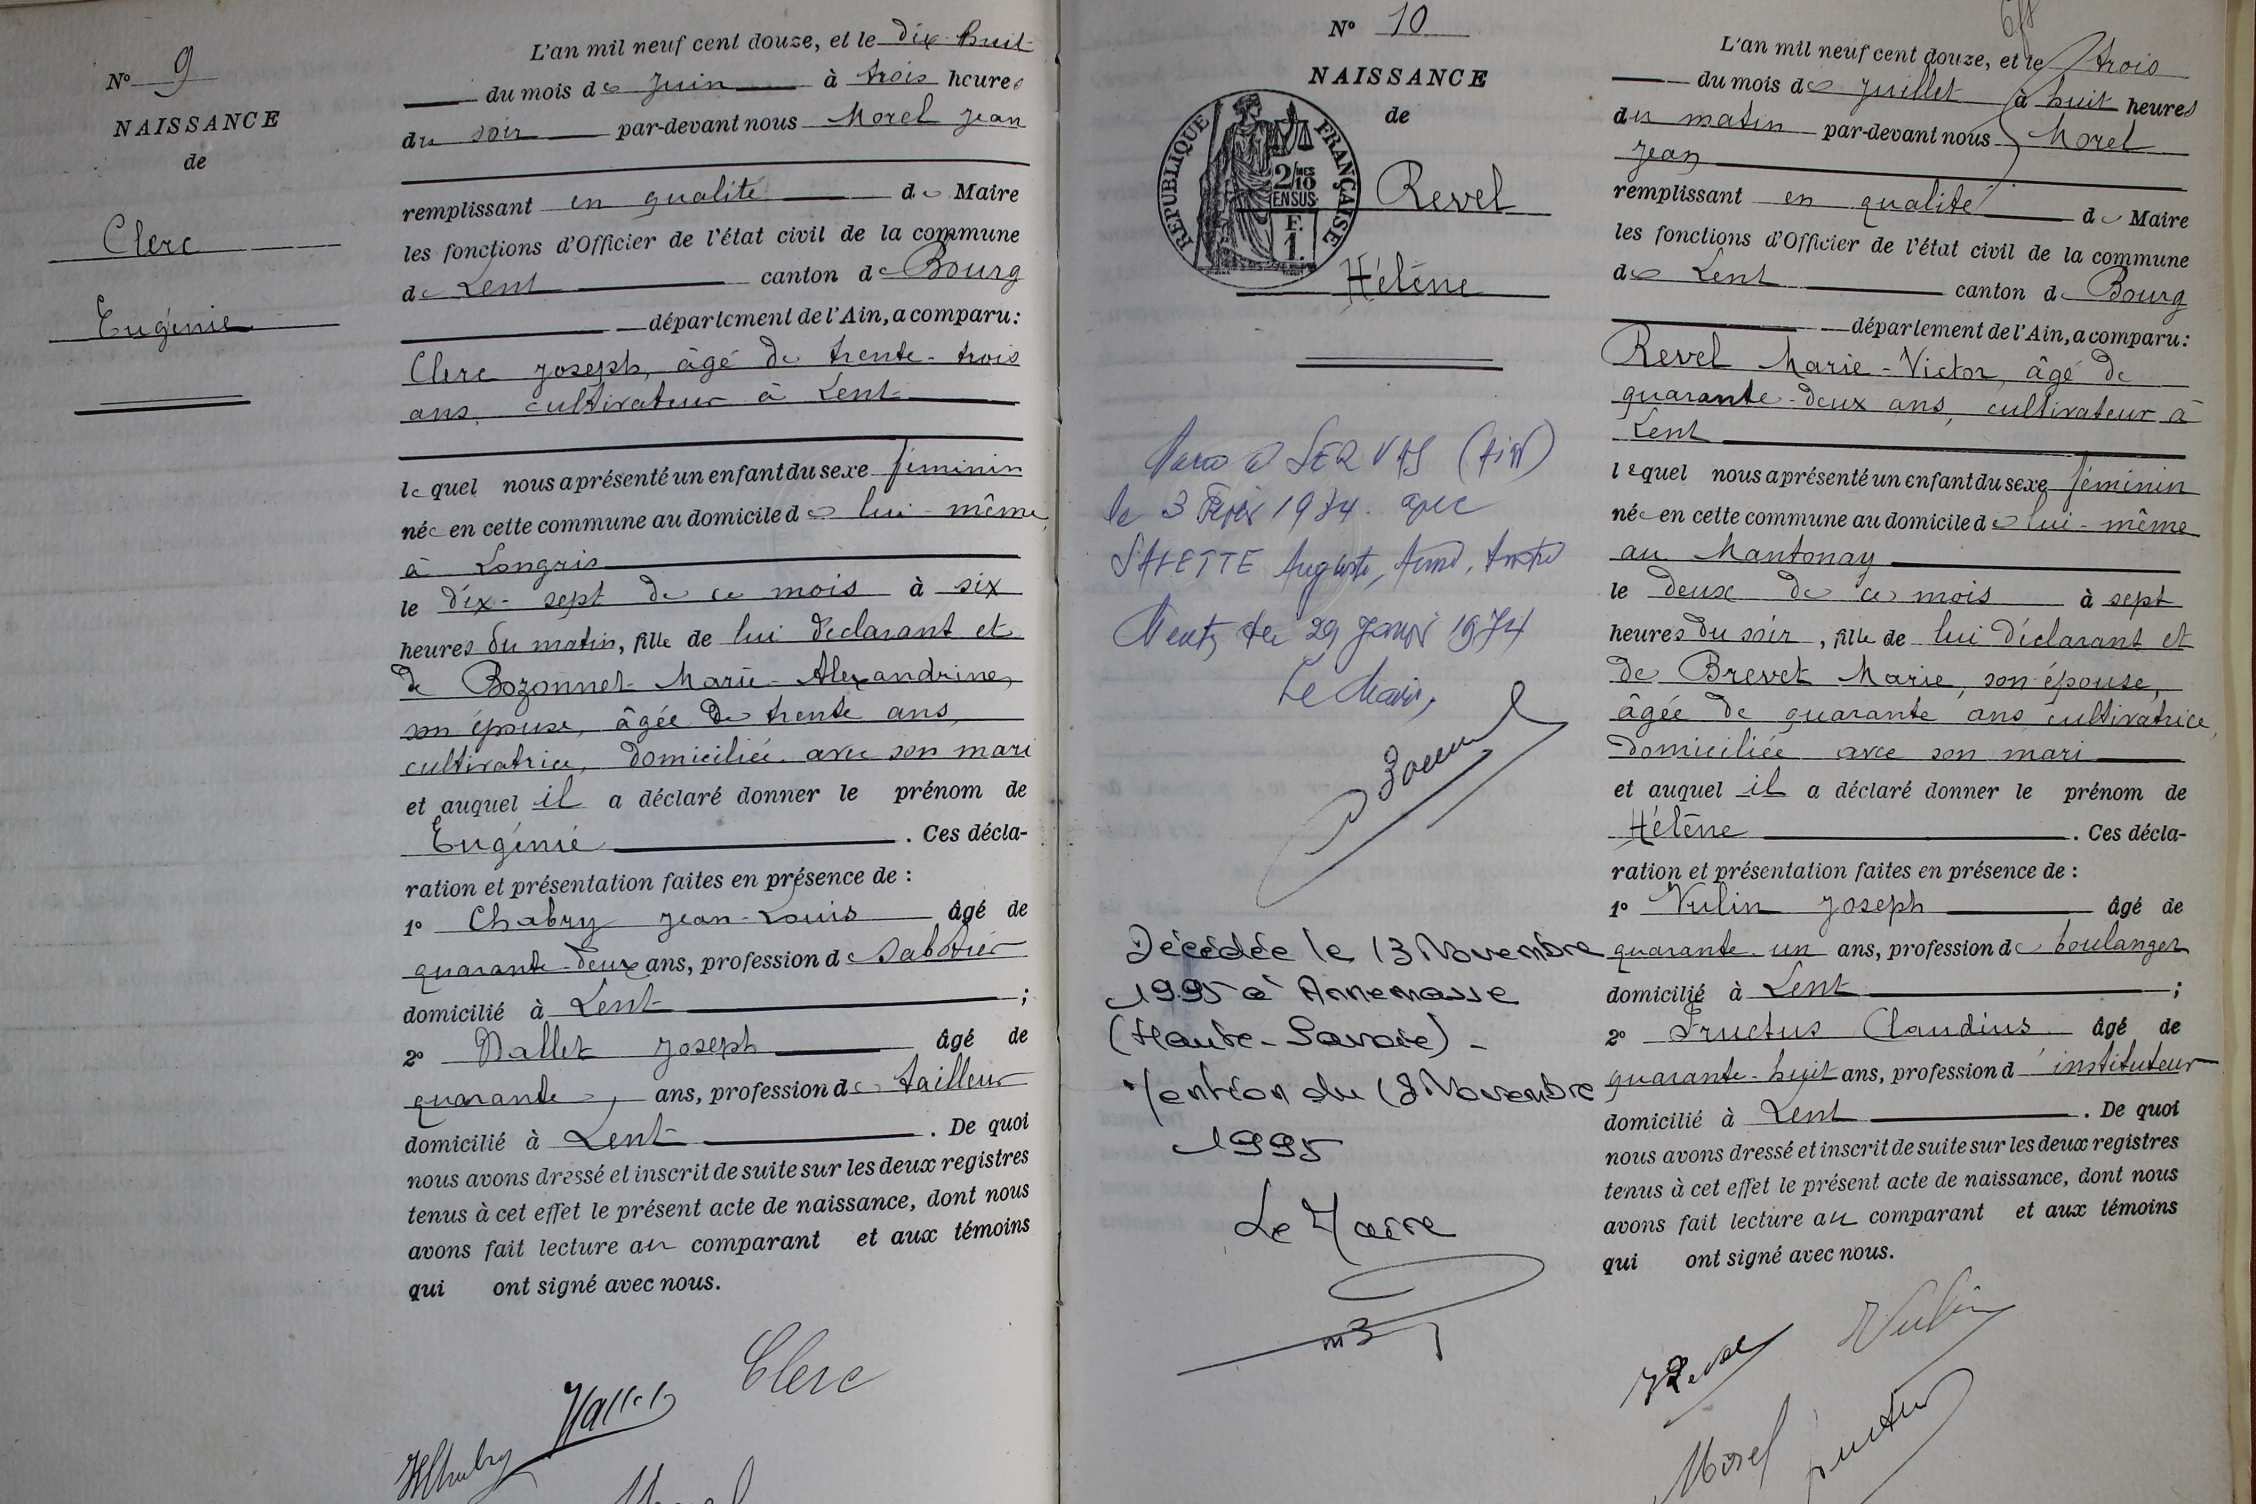 N° 9
NAISSANCE
de
Clerc
Eugénie
L'an mil neuf cent douze, et le dix-huit
du mois de Juin à trois heures
du soir par-devant nous Morel Jean
remplissant en qualité de Maire
les fonctions d'Officier de l'état civil de la commune
de Lent canton de Bourg
département de l'Ain, a comparu:
Clerc Joseph, âgé de trente-trois
ans, cultivateur à Lent
lequel nous a présenté un enfant du sexe féminin
née en cette commune au domicile de lui-même
à Longris
le dix-sept de ce mois à six
heures du matin, fille de lui déclarant et
de Bozonnet Marie-Alexandrine,
son épouse, âgée de trente ans,
cultivatrice, domiciliée avec son mari
et auquel il a déclaré donner le prénom de
Eugénie . Ces décla-
ration et présentation faites en présence de :
1° Chabry Jean-Louis âgé de
quarante-deux ans, profession de Sabotier
domicilié à Lent ;
2° Nallet Joseph âgé de
quarante, ans, profession de tailleur
domicilié à Lent . De quoi
nous avons dressé et inscrit de suite sur les deux registres
tenus à cet effet le présent acte de naissance, dont nous
avons fait lecture au comparant et aux témoins
qui ont signé avec nous.
Clerc
Nallet
Chabry
Morel
N° 10
NAISSANCE
de
REPUBLIQUE FRANÇAISE
2/10 MES
EN SUS
F.
1.
Revel
Hélène
à SERVAS (Ain)
le 3 1974 avec
SAVETTE
29 1974
Le Maire,
Décédée le 13 Novembre
1995 à Annemasse
(Haute-Savoie) -
Mention du 18 Novembre
1995
Le Maire
L'an mil neuf cent douze, et le trois
du mois de Juillet à huit heures
du matin par-devant nous Morel
Jean
remplissant en qualité de Maire
les fonctions d'Officier de l'état civil de la commune
de Lent canton de Bourg
département de l'Ain, a comparu:
Revel Marie-Victor, âgé de
quarante-deux ans, cultivateur à
Lent
lequel nous a présenté un enfant du sexe féminin
née en cette commune au domicile de lui-même
au Mantonay
le deux de ce mois à sept
heures du soir, fille de lui déclarant et
de Brevet Marie, son épouse,
âgée de quarante ans cultivatrice,
domiciliée avec son mari
et auquel il a déclaré donner le prénom de
Hélène . Ces décla-
ration et présentation faites en présence de :
1° Vulin Joseph âgé de
quarante-un ans, profession de boulanger
domicilié à Lent ;
2° Fructus Claudius âgé de
quarante-huit ans, profession d'instituteur
domicilié à Lent . De quoi
nous avons dressé et inscrit de suite sur les deux registres
tenus à cet effet le présent acte de naissance, dont nous
avons fait lecture au comparant et aux témoins
qui ont signé avec nous.
Revel Vulin
Morel Fructus